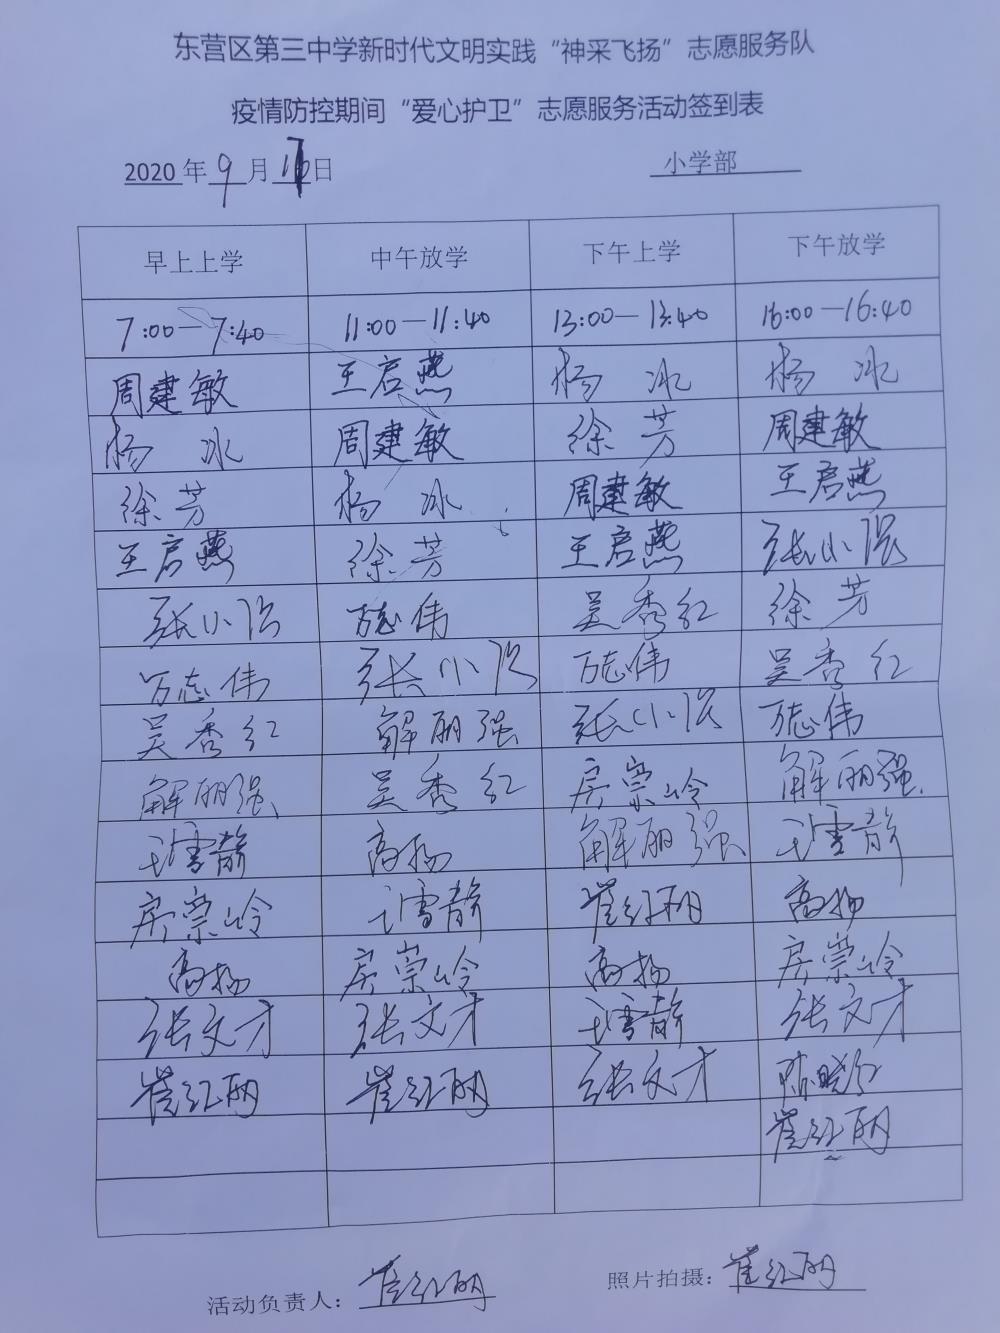 东营区第三中学新时代文明实践“神采飞扬”志愿服务队
疫情防控期间“爱心护卫”志愿服务活动签到表
2020年9月 日 小学部
早上上学 中午放学 下午上学 下午放学
7:00—7:40 11:00—11:40 13:00—13:40 16:00—16:40
周建敏 王启燕 杨冰 杨冰
杨冰 周建敏 徐芳 周建敏
徐芳 杨冰 周建敏 王启燕
王启燕 徐芳 王启燕 张小
张小 万志伟 吴秀红 徐芳
万志伟 张小 万志伟 吴秀红
吴秀红 解丽强 张小 万志伟
解丽强 吴秀红 房崇岭 解丽强
雪静 高扬 解丽强 雪静
房崇岭 雪静 崔红丽 高扬
高扬 房崇岭 高扬 房崇岭
张文才 张文才 雪静 张文才
崔红丽 崔红丽 张文才 陈晓
崔红丽
活动负责人：崔红丽 照片拍摄：崔红丽